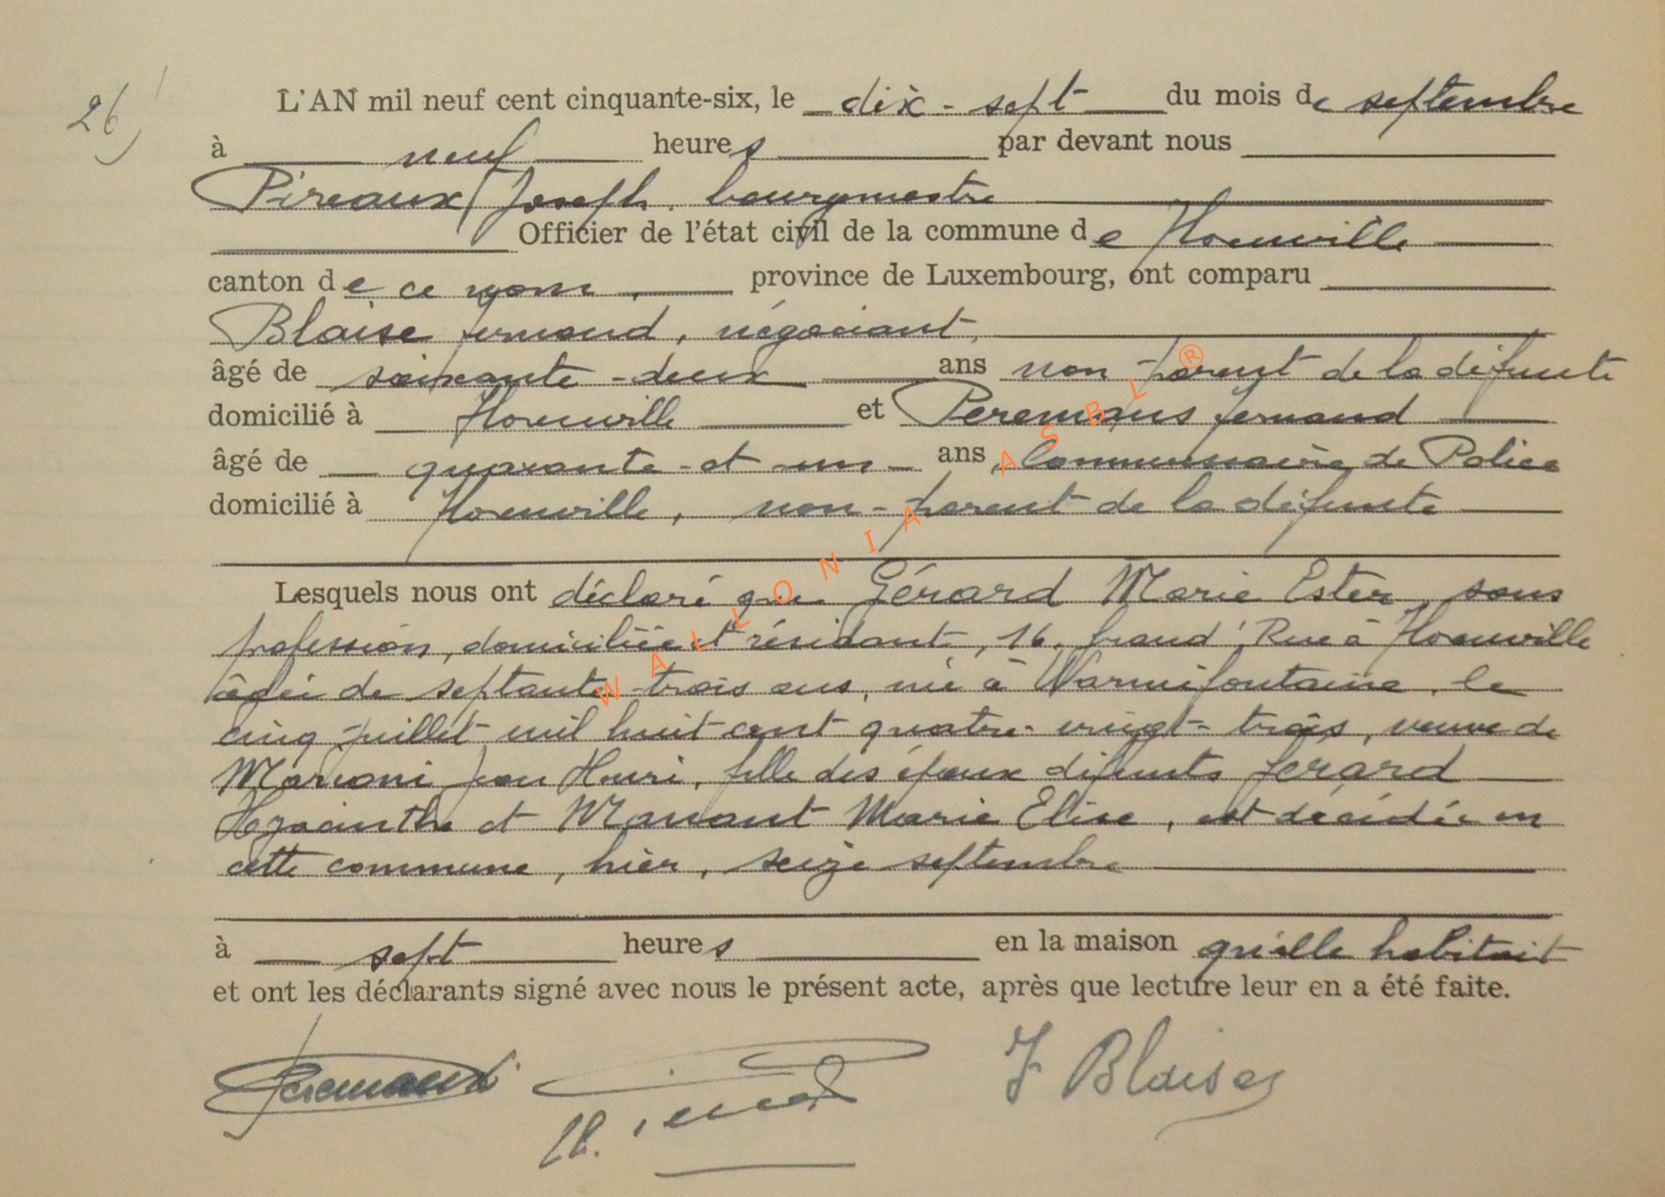 26)
L'AN mil neuf cent cinquante-six, le dix-sept du mois de septembre
à neuf heures par devant nous
Pireaux Joseph, bourgmestre
Officier de l'état civil de la commune de Florenville
canton de ce nom, province de Luxembourg, ont comparu
Blaise Fernand, négociant,
âgé de soixante-deux ans non-parent de la défunte
domicilié à Florenville et Peremans Fernand
âgé de quarante-et-un ans, Commissaire de Police
domicilié à Florenville, non-parent de la défunte
Lesquels nous ont déclaré que Gérard Marie Ester, sans
profession, domiciliée et résidant, 16, Grand'Rue à Florenville
âgée de septante-trois ans, née à Warmifontaine, le
cinq juillet mil huit cent quatre-vingt-trois, veuve de
Jean Henri, fille des époux défunts Gérard
Hyacinthe et Marie Elise, est décédée en
cette commune, hier, seize septembre
à sept heures en la maison qu'elle habitait
et ont les déclarants signé avec nous le présent acte, après que lecture leur en a été faite.
F Blaise
WALLONIA ASBL ®